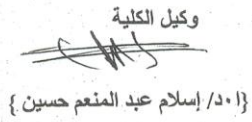 وكيل الكلية
{ا ٠د/ إسلام عبد المنعم حسين }